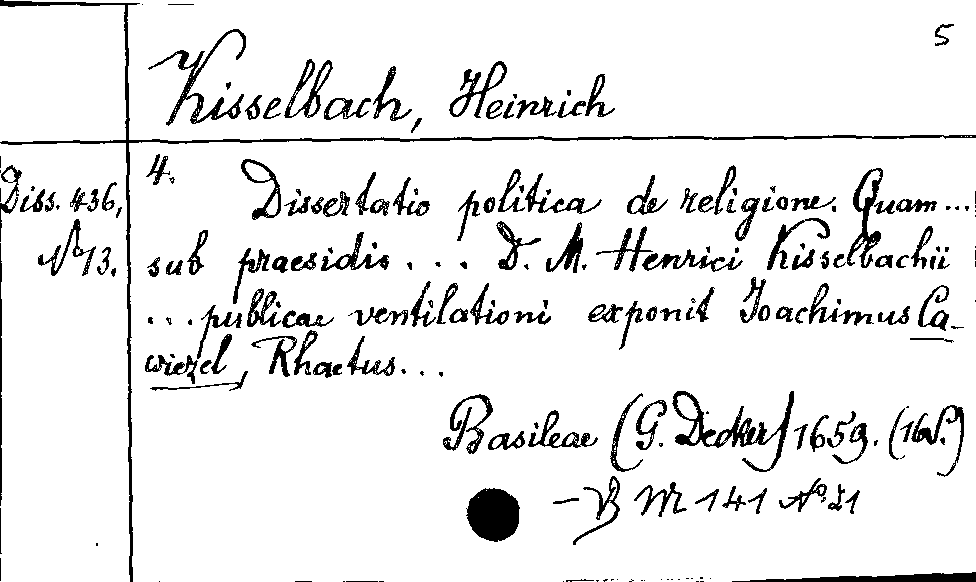 5
Kisselbach, Heinrich
Diss. 436,
No 13.
4.
Dissertatio politica de religione. Quam...
sub praesidio ... D. M. Henrici Kisselbachii
... publicae ventilationi exponit Joachimus Ca-
wiezel, Rhaetus...
Basileae (G. Decker) 1659. (16 S.)
- B M 141 No 21